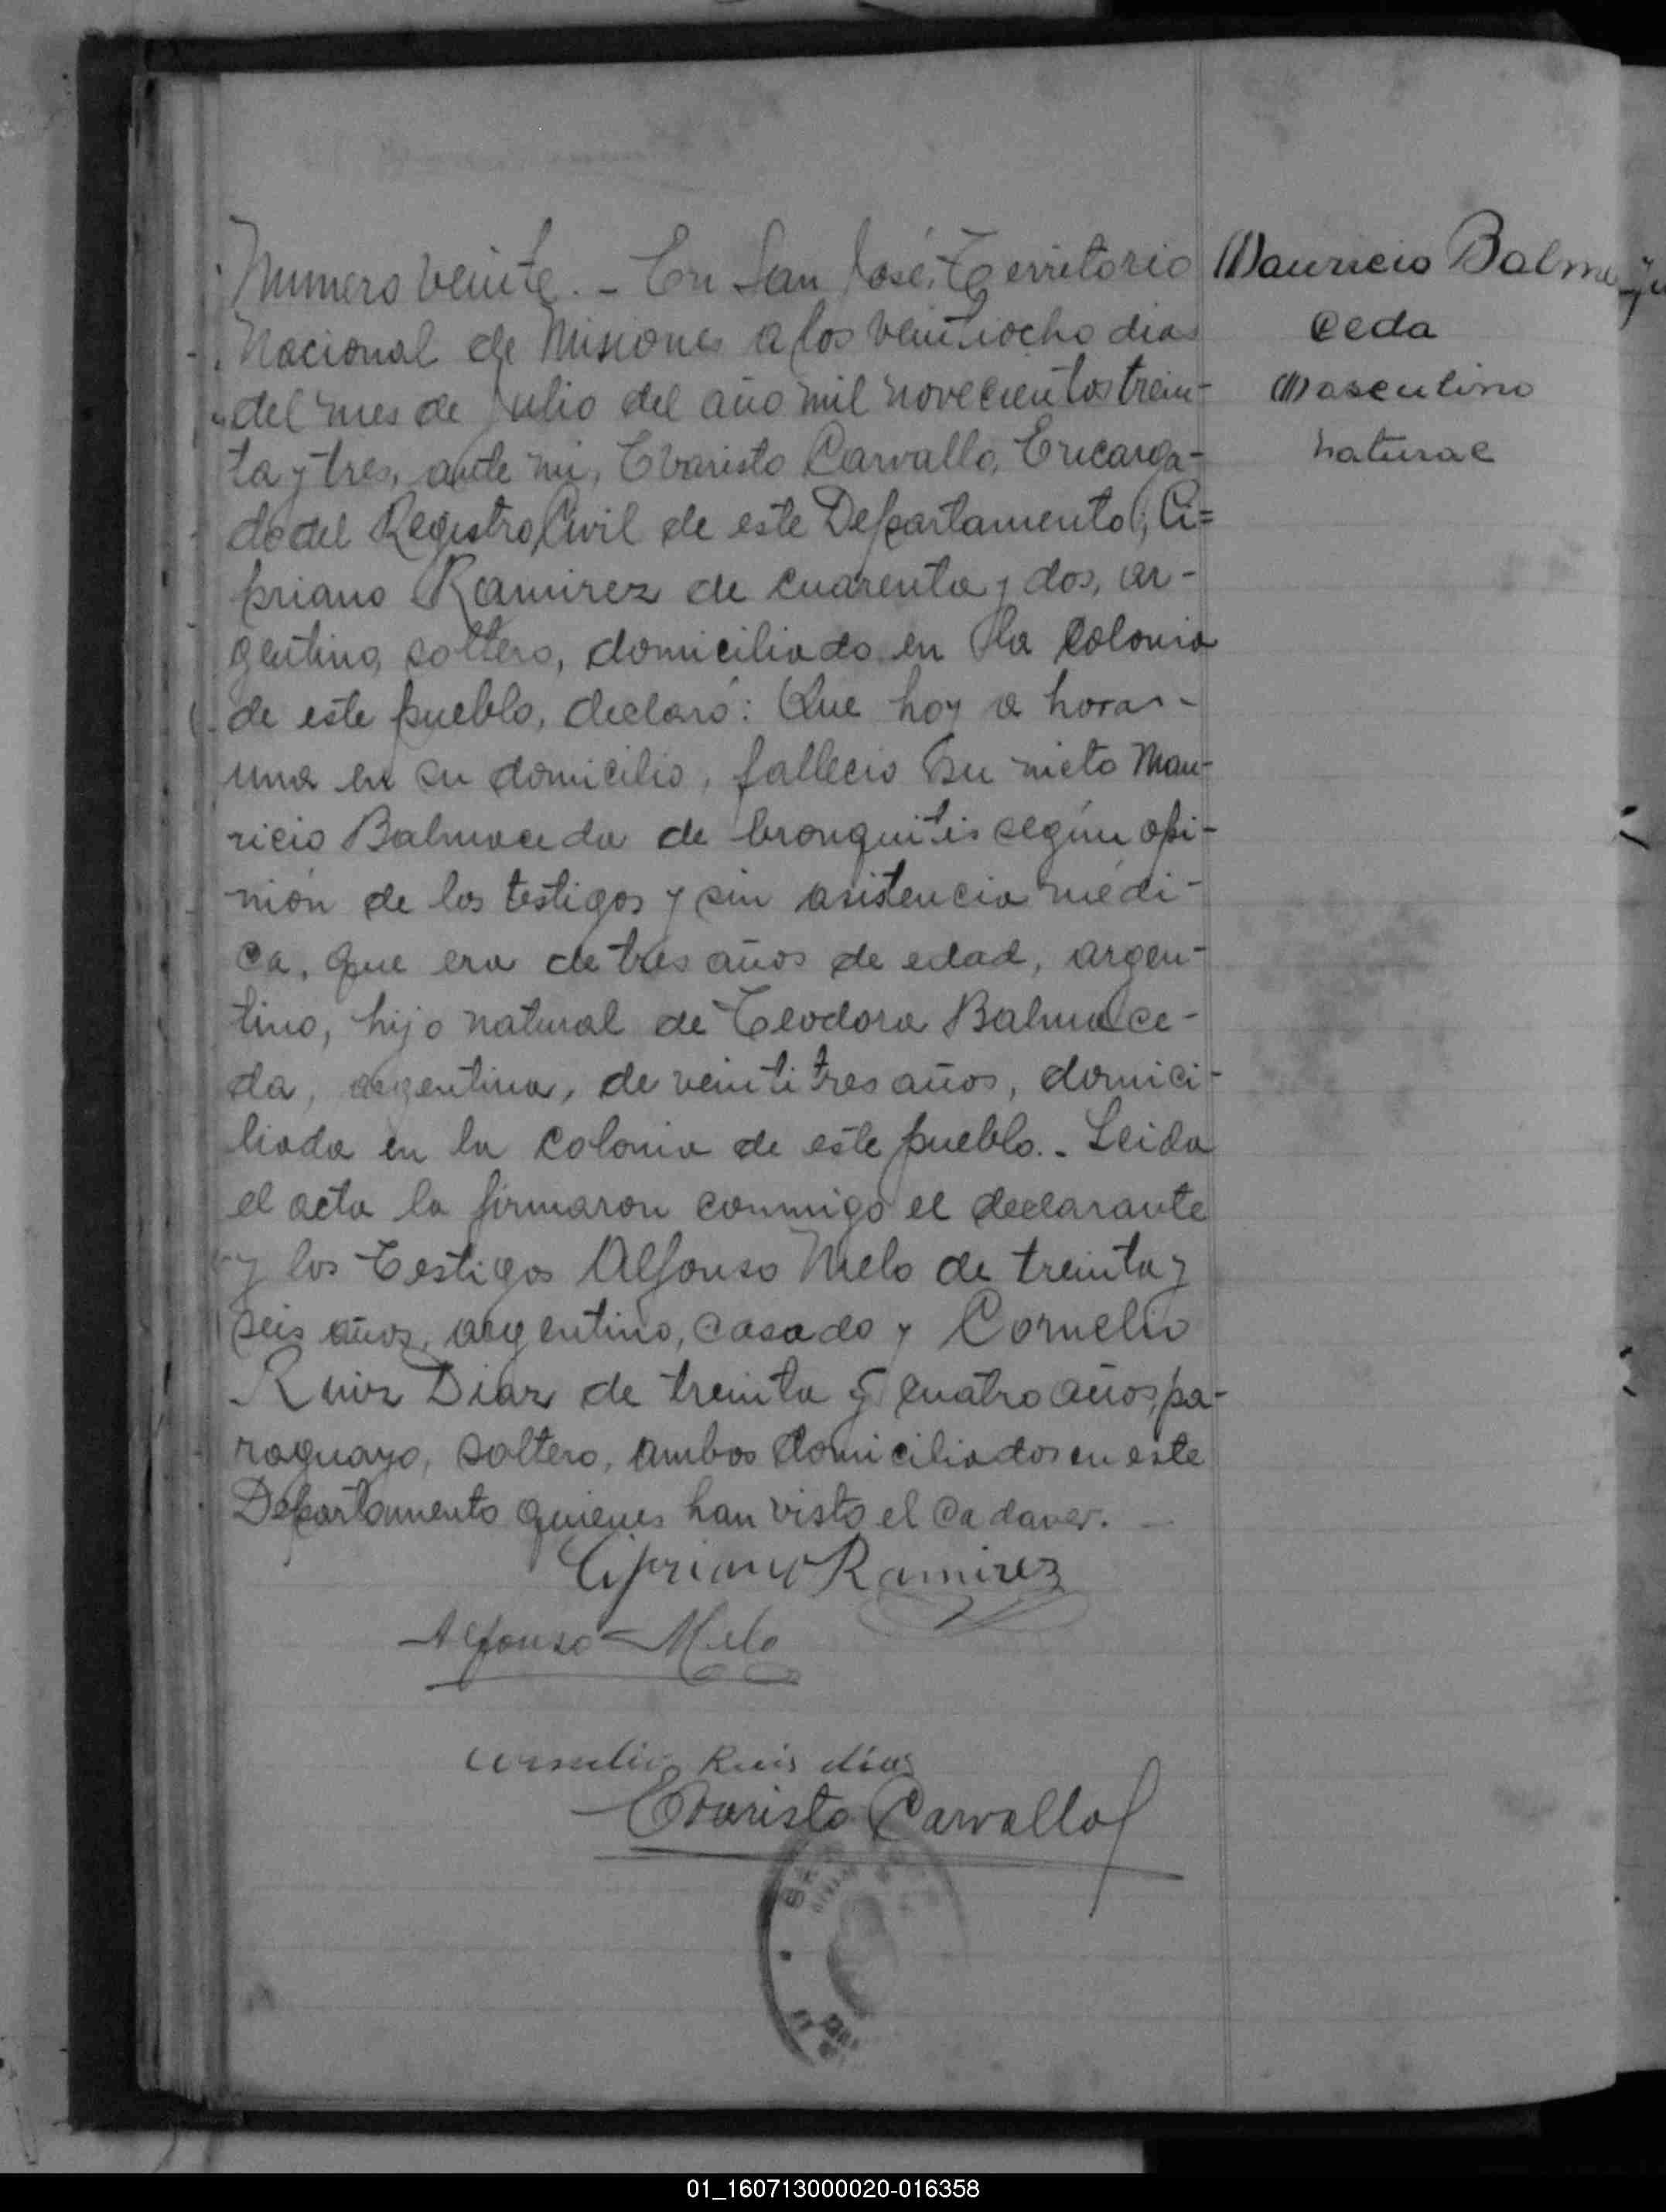 Numero veinte. - En San José, Territorio
Nacional de Misiones a los veintiocho dias
del mes de Julio del año mil novecientos trein-
ta y tres, ante mi, Evaristo Carvallo, Encarga-
do del Registro Civil de este Departamento, Ci=
priano Ramirez de cuarenta y dos, ar-
gentino, soltero, domiciliado en la colonia
de este pueblo, declaró: Que hoy a horas -
una en su domicilio, fallecio su nieto Mau-
ricio Balmaceda de bronquitis según opi-
nión de los testigos y sin asistencia médi-
ca, que era de tres años de edad, argen-
tino, hijo natural de Teodora Balmace-
da, argentina, de veintitres años, domici-
liada en la colonia de este pueblo.. Leida
el acta la firmaron conmigo el declarante
y los testigos Alfonso Melo de treinta y
seis años, argentino, casado y Cornelio
Ruiz Diaz de treinta y cuatro años, pa-
raguayo, soltero, ambos domiciliados en este
Departamento quienes han visto el cadaver. -
Cipriano Ramirez
Alfonso Melo
Cornelio Ruis díaz
Evaristo Carvallo
Mauricio Balma
ceda
Masculino
natural
01_160713000020-016358